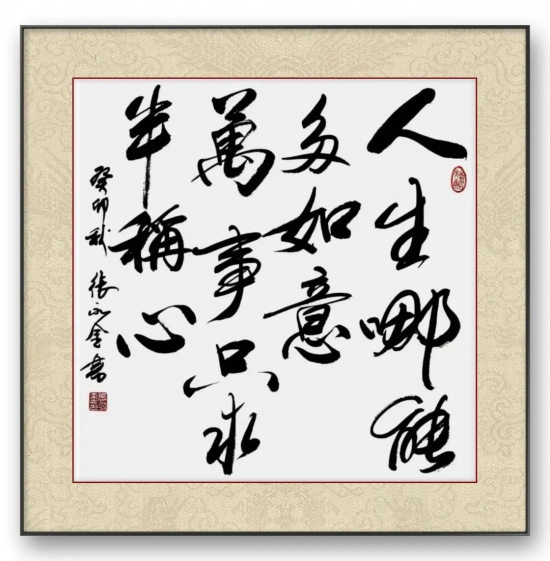 人生哪能
多如意
萬事只求
半稱心
癸卯秋 張永金書